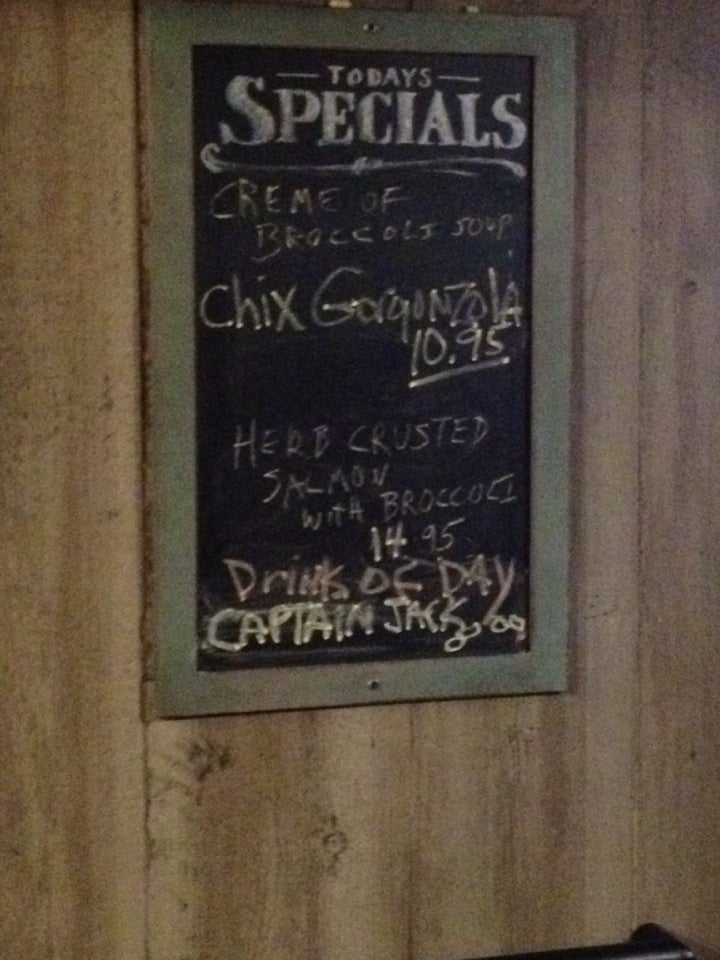 TODAYS
SPECIALS
CREME OF
BROCCOLI SOUP
Chix GorgonzolA
10.95
HERB CRUSTED
SALMON
WITH BROCCOLI
14.95
Drink OF DAY
CAPTAIN JACK